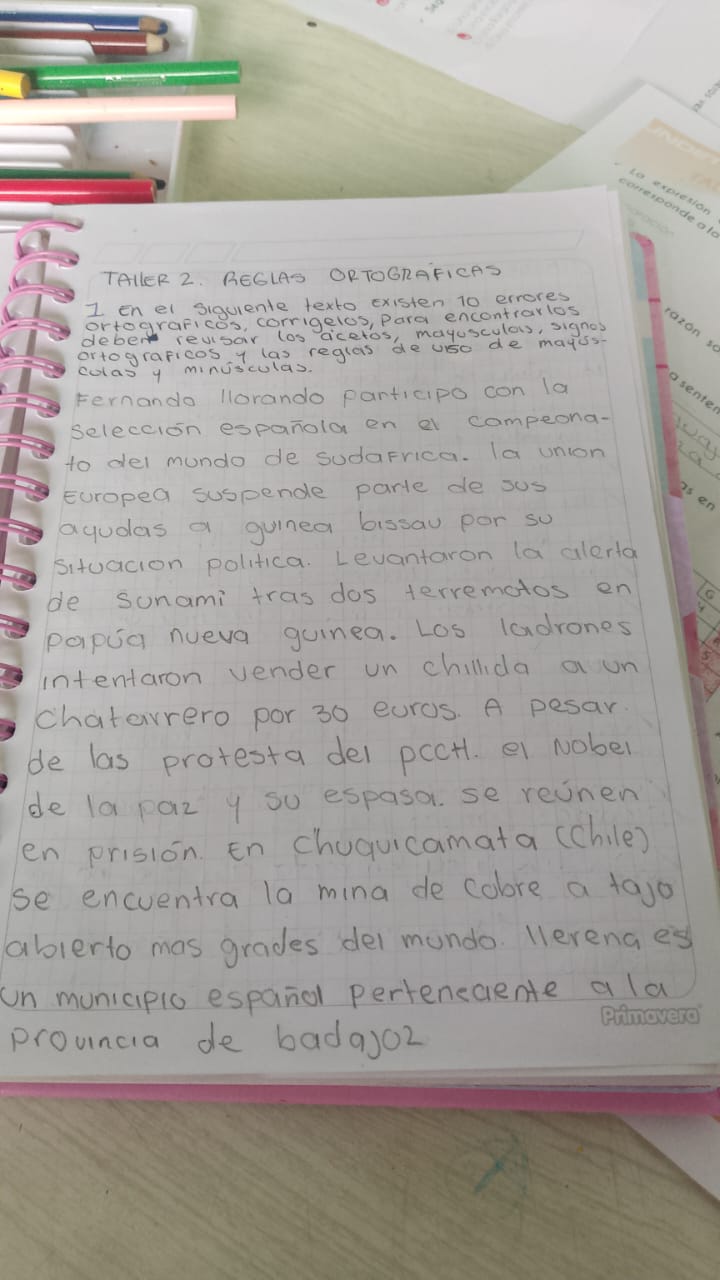 TALLER 2. REGLAS ORTOGRÁFICAS
1 En el siguiente texto existen 10 errores
ortograficos, corrigelos, para encontrarlos
deber revisar los acetos, mayusculas, signos
ortograficos y las reglas de uso de mayús-
culas y minúsculas.
Fernando llorando participo con la
selección española en el campeona-
to del mundo de sudaFrica. la union
Europea suspende parte de sus
ayudas a guinea bissau por su
situacion politica. Levantaron la alerta
de sunami tras dos terremotos en
papúa nueva guinea. Los ladrones
intentaron vender un chillida a un
chatarrero por 30 euros. A pesar.
de las protesta del pccH. el Nobel
de la paz y su espasa. se reúnen
en prisión. En Chuquicamata (Chile)
se encuentra la mina de cobre a tajo
abierto mas grades del mundo. llerena es
un municipio español perteneciente a la
provincia de badajoz
Primavera
La expresión
corresponde a lo
razón so
a senten
as en